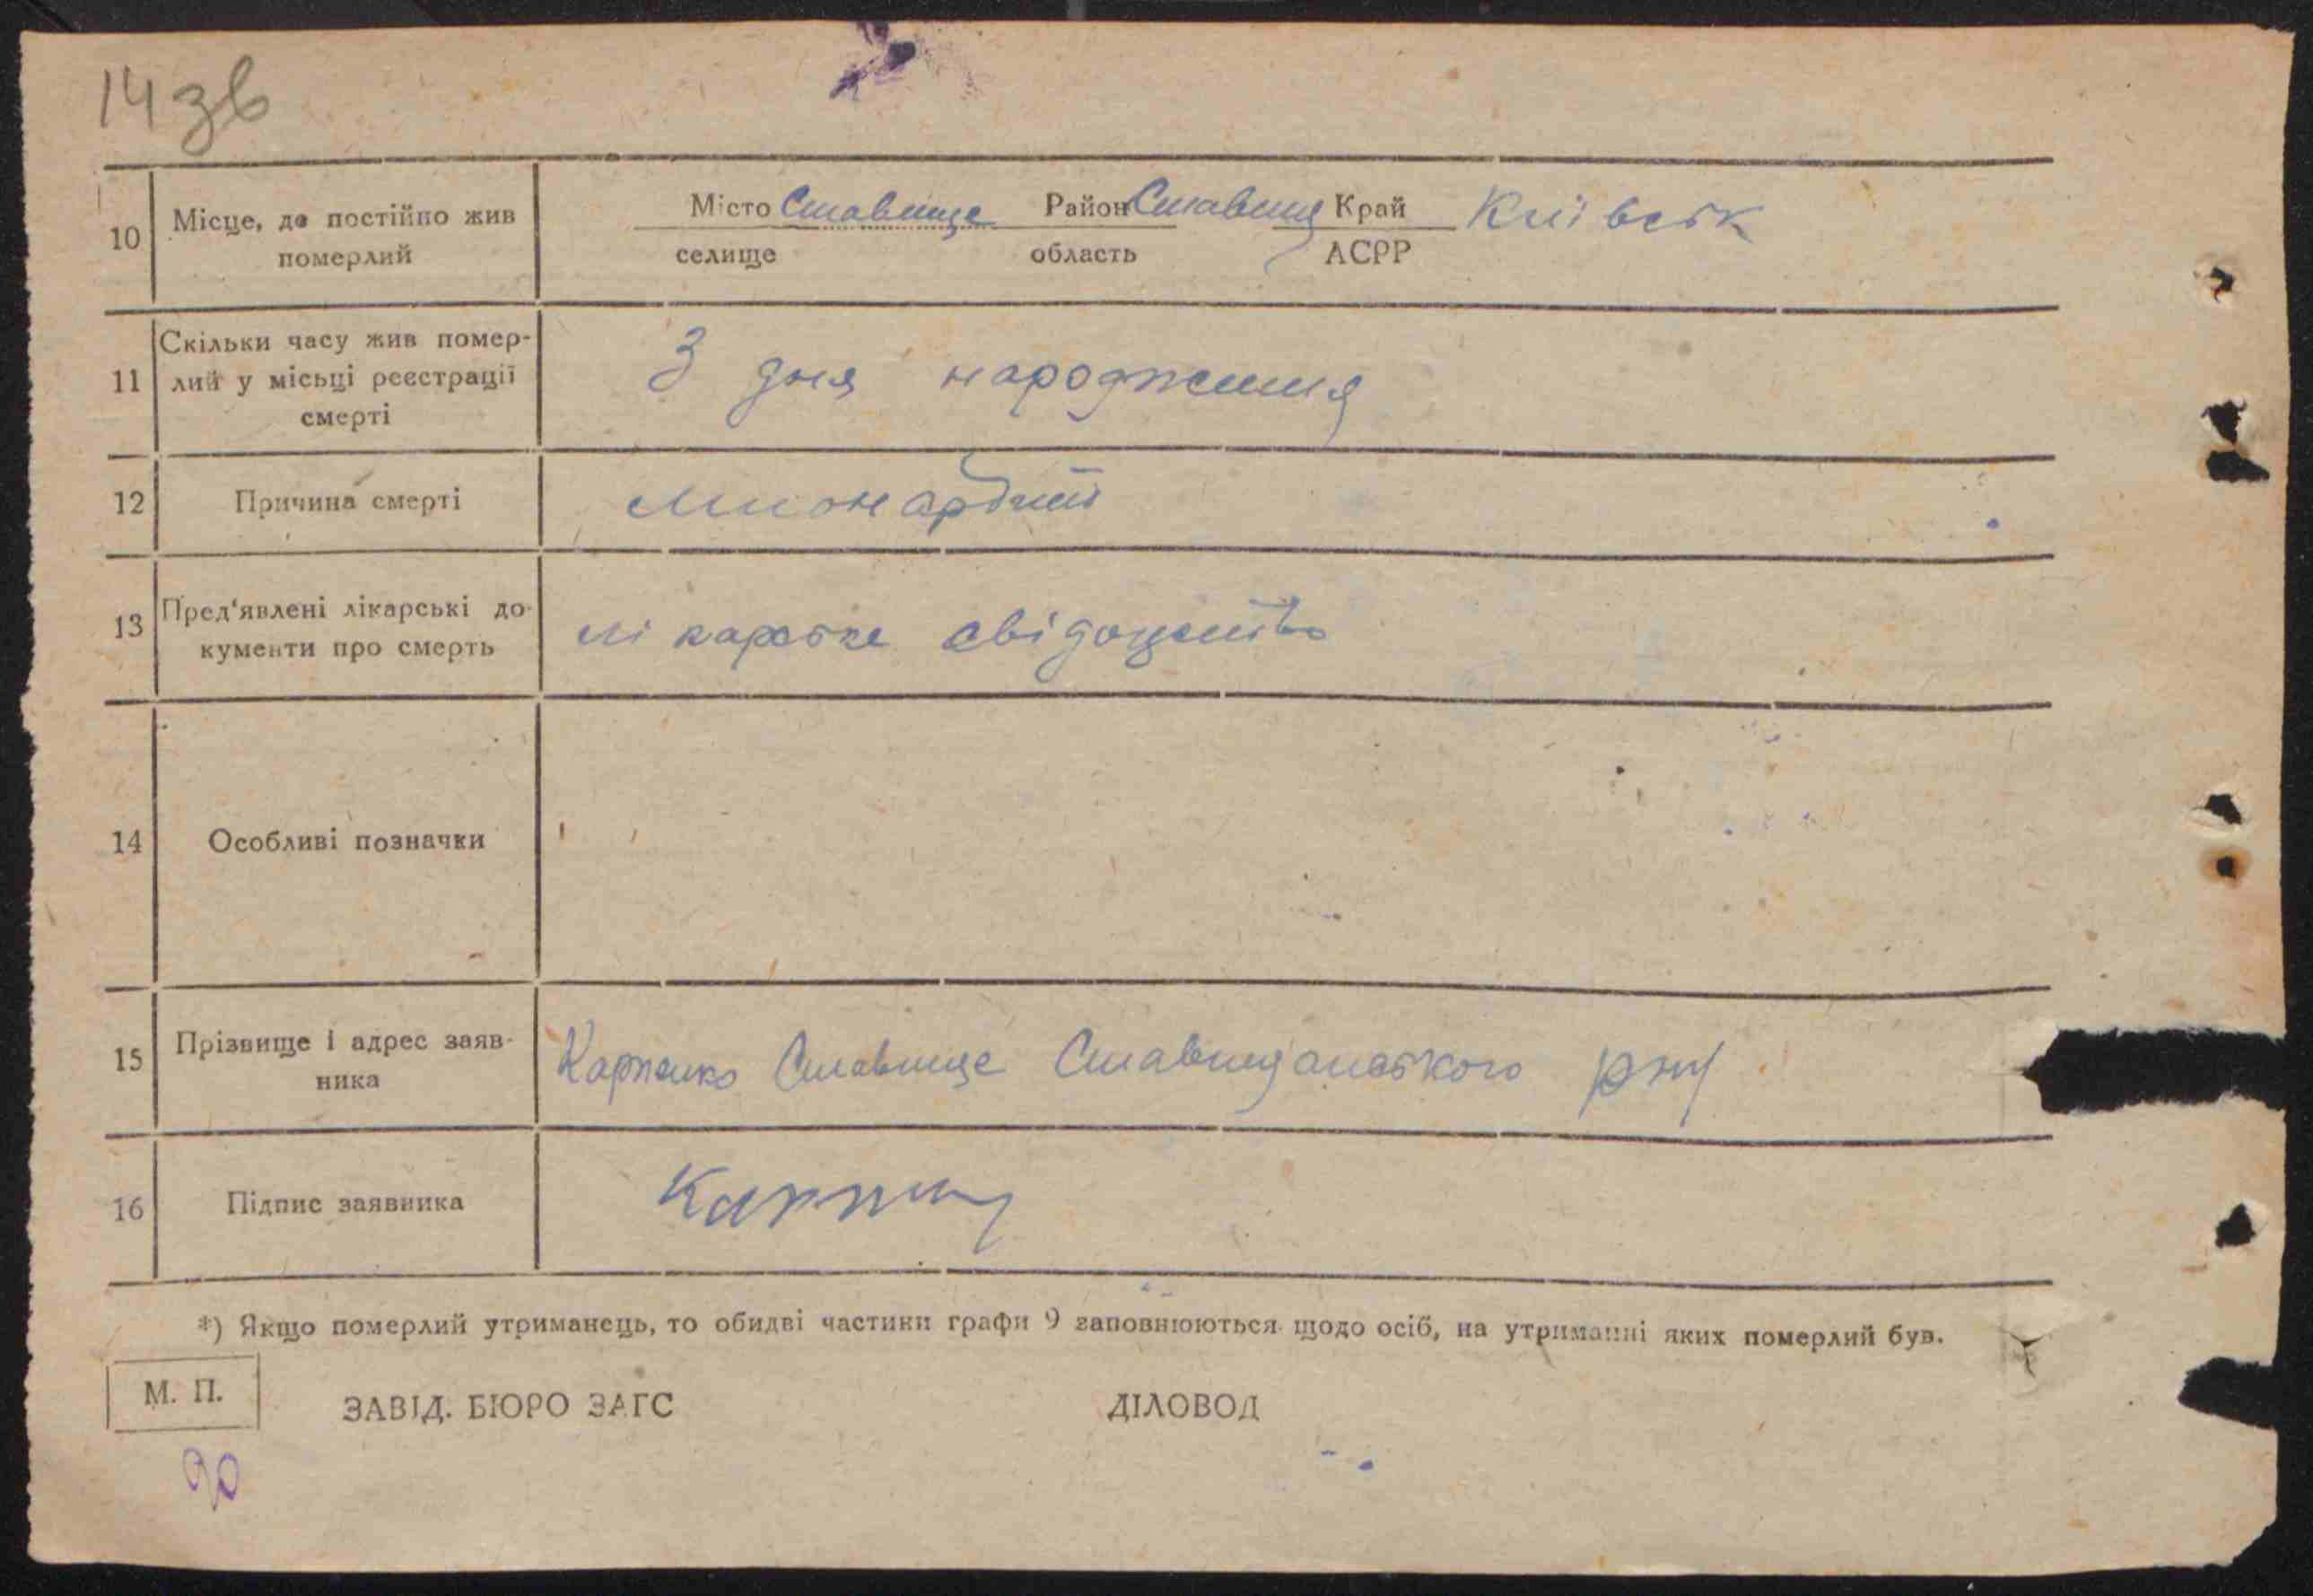 14 зв
10 Місце, де постійно жив померлий
Місто Ставище Район Ставищ Край Київськ
селище область АСРР
11 Скільки часу жив помер-
лий у місьці реєстрації
смерті
З дня народження
12 Причина смерті
13 Пред'явлені лікарські до-
кументи про смерть
лікарське свідоцтво
14 Особливі позначки
15 Прізвище і адрес заяв-
ника
Карпенко Ставище Ставищанського р-ну
16 Підпис заявника
*) Якщо померлий утриманець, то обидві частини графи 9 заповнюються щодо осіб, на утриманні яких померлий був.
М. П.
ЗАВІД. БЮРО ЗАГС ДІЛОВОД